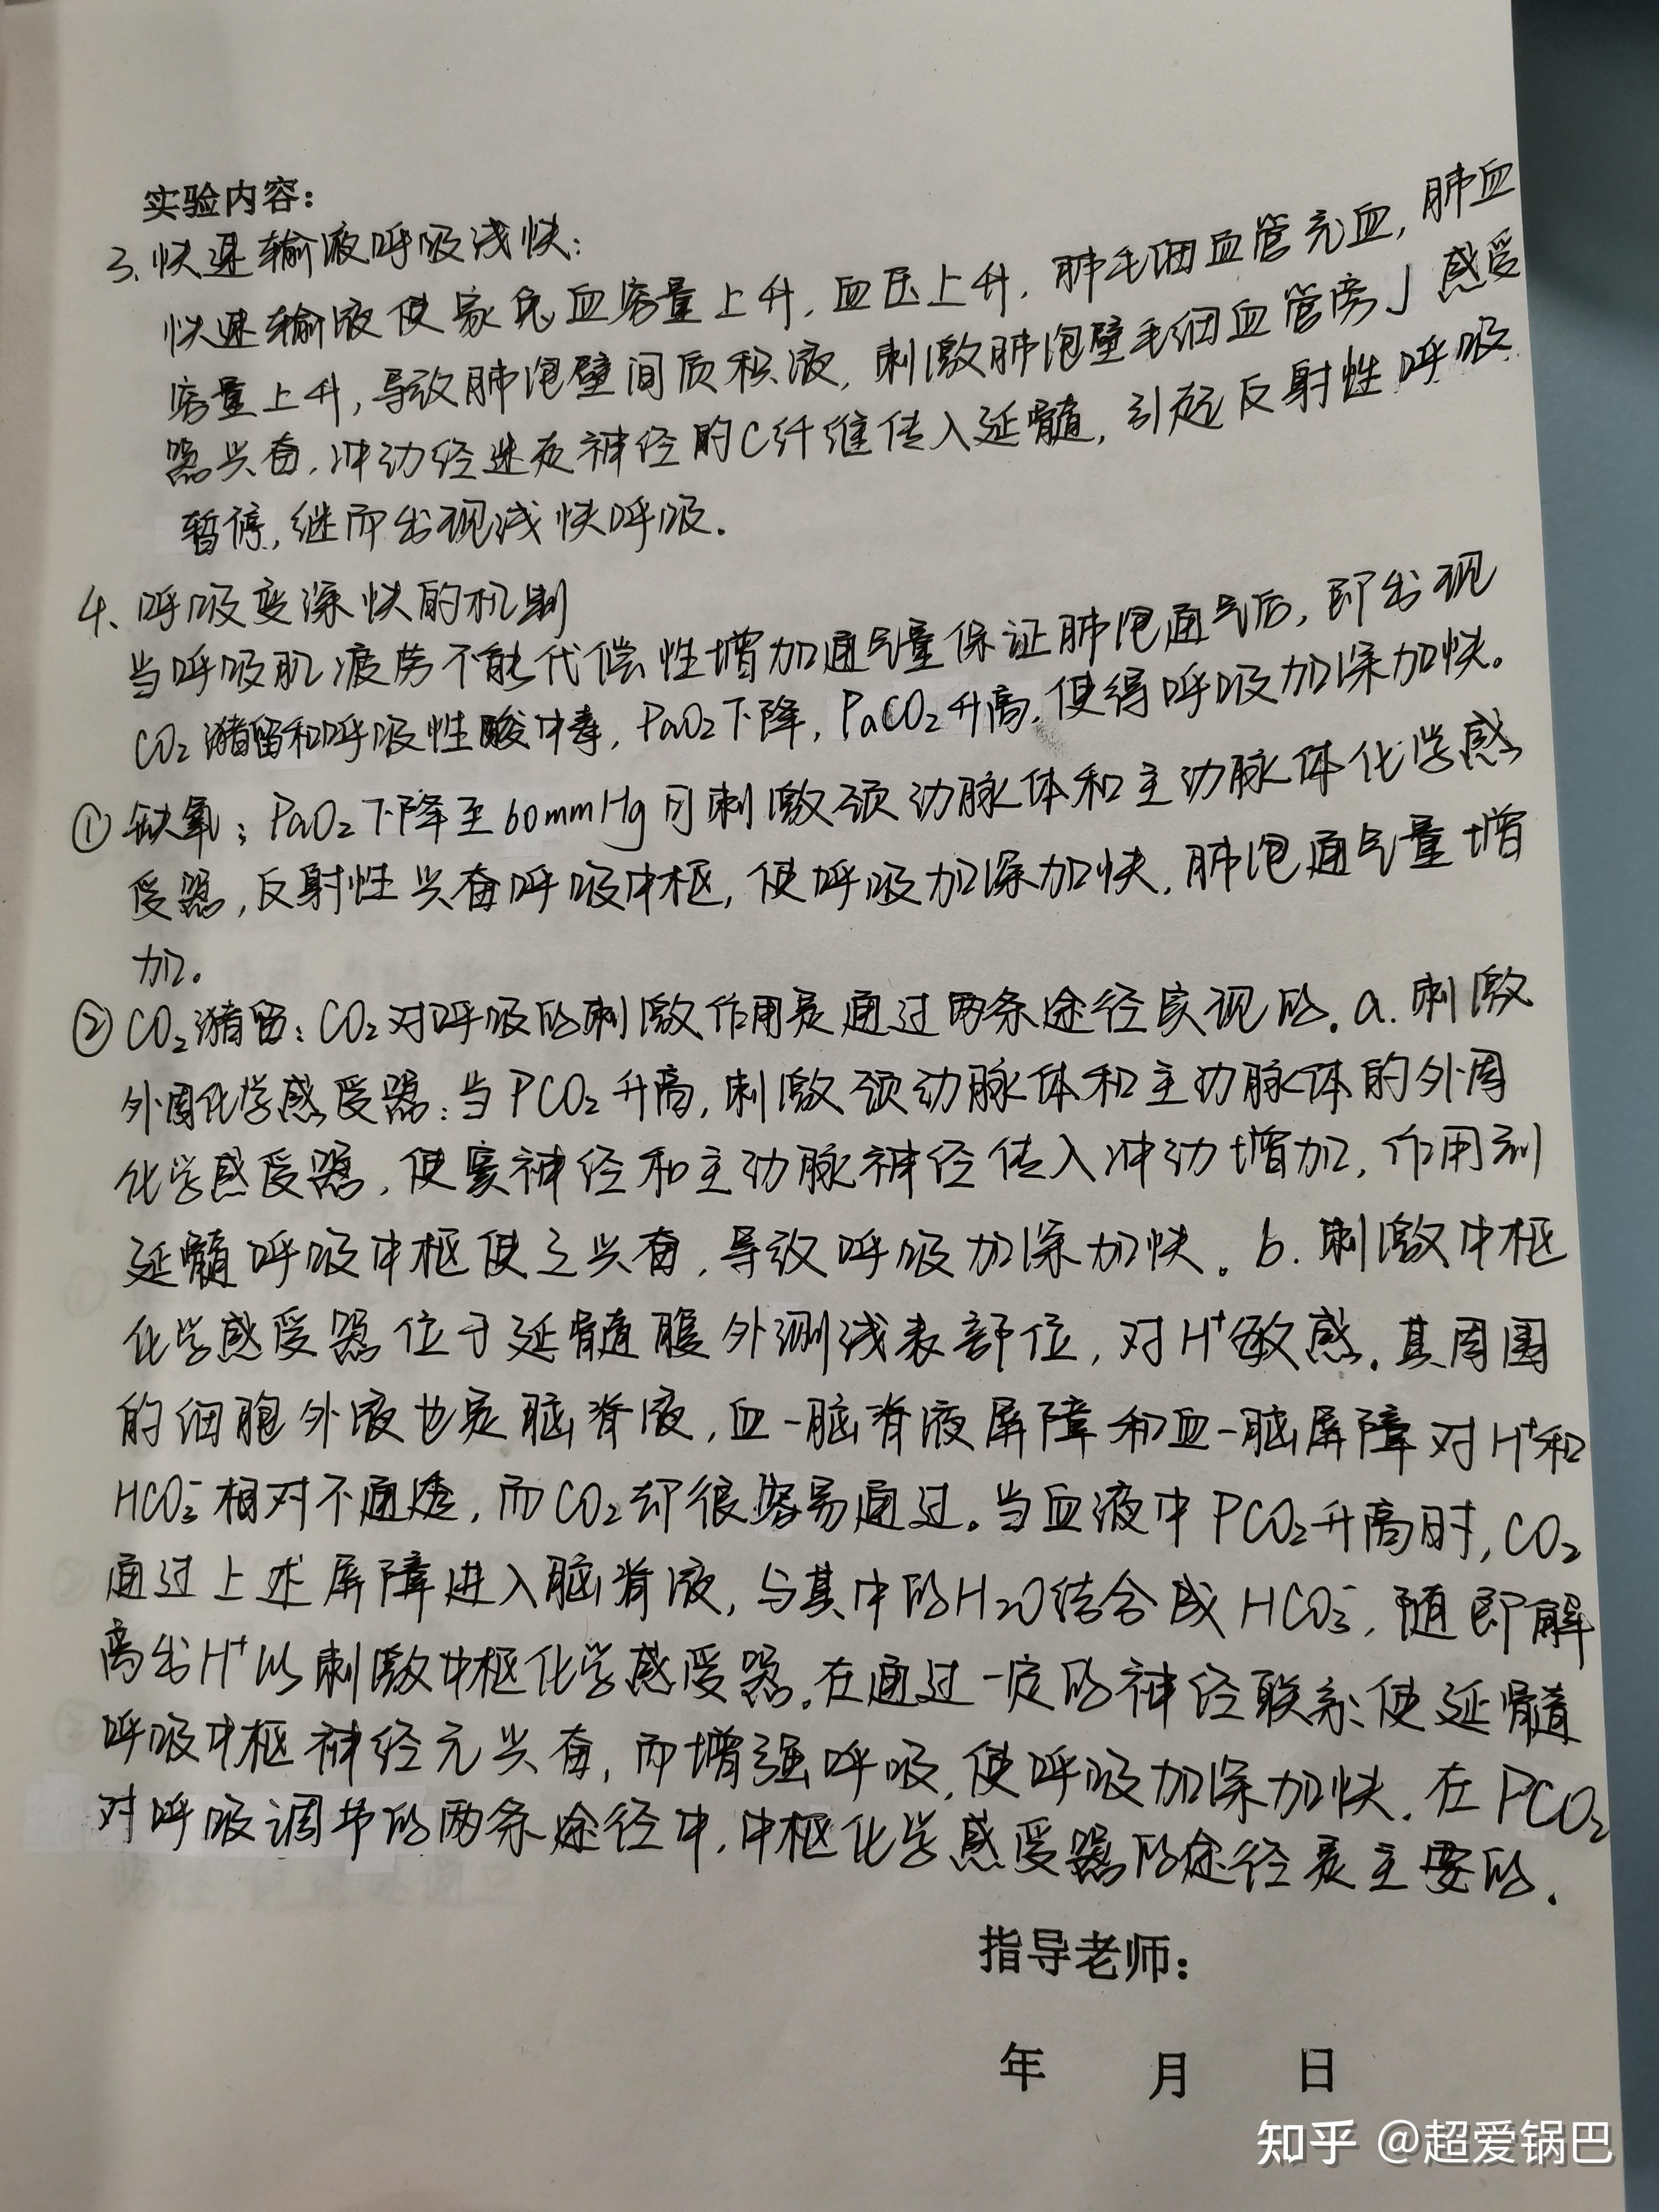 实验内容：
3、快速输液呼吸浅快：
快速输液使家兔血容量上升，血压上升，肺毛细血管充血，肺血
容量上升，导致肺泡壁间质积液，刺激肺泡壁毛细血管旁J感受
器兴奋，冲动经迷走神经的C纤维传入延髓，引起反射性呼吸
暂停，继而出现浅快呼吸．
4、呼吸变深快的机制
当呼吸肌疲劳不能代偿性增加通气量保证肺泡通气后，即出现
CO₂潴留和呼吸性酸中毒，PaO₂下降，PaCO₂升高，使得呼吸加深加快。
①缺氧；PaO₂下降至60mmHg可刺激颈动脉体和主动脉体化学感
受器，反射性兴奋呼吸中枢，使呼吸加深加快，肺泡通气量增
加。
②CO₂潴留：CO₂对呼吸的刺激作用是通过两条途径实现的．a．刺激
外周化学感受器：当PCO₂升高，刺激颈动脉体和主动脉体的外周
化学感受器，使窦神经和主动脉神经传入冲动增加，作用到
延髓呼吸中枢使之兴奋，导致呼吸加深加快。b．刺激中枢
化学感受器位于延髓腹外测浅表部位，对H⁺敏感．其周围
的细胞外液也是脑脊液，血-脑脊液屏障和血-脑屏障对H⁺和
HCO₃⁻相对不通透，而CO₂却很容易通过。当血液中PCO₂升高时，CO₂
通过上述屏障进入脑脊液，与其中的H₂O结合成HCO₃⁻，随即解
离出H⁺以刺激中枢化学感受器．在通过一定的神经联系使延髓
呼吸中枢神经元兴奋，而增强呼吸，使呼吸加深加快．在PCO₂
对呼吸调节的两条途径中，中枢化学感受器的途径是主要的．
指导老师：
年 月 日
知乎 @超爱锅巴